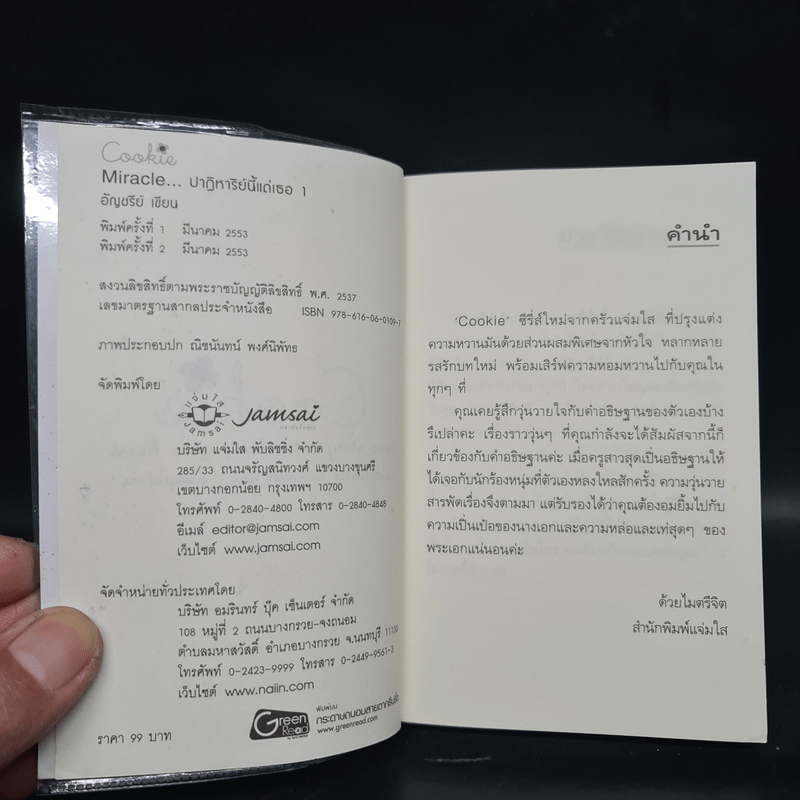 Cookie
Miracle... ปาฏิหาริย์นี้แด่เธอ 1
อัญชรีย์ เขียน
พิมพ์ครั้งที่ 1 มีนาคม 2553
พิมพ์ครั้งที่ 2 มีนาคม 2553
สงวนลิขสิทธิ์ตามพระราชบัญญัติลิขสิทธิ์ พ.ศ. 2537
เลขมาตรฐานสากลประจำหนังสือ ISBN 978-616-06-0109-7
ภาพประกอบปก ณิชนันทน์ พงศ์นิพัทธ
จัดพิมพ์โดย
แจ่มใส
Jamsai
Jamsai
บริษัท แจ่มใส พับลิชชิ่ง จำกัด
285/33 ถนนจรัญสนิทวงศ์ แขวงบางขุนศรี
เขตบางกอกน้อย กรุงเทพฯ 10700
โทรศัพท์ 0-2840-4800 โทรสาร 0-2840-4848
อีเมล์ editor@jamsai.com
เว็บไซต์ www.jamsai.com
จัดจำหน่ายทั่วประเทศโดย
บริษัท อมรินทร์ บุ๊ค เซ็นเตอร์ จำกัด
108 หมู่ที่ 2 ถนนบางกรวย-จงถนอม
ตำบลมหาสวัสดิ์ อำเภอบางกรวย จ.นนทบุรี 11130
โทรศัพท์ 0-2423-9999 โทรสาร 0-2449-9561-3
เว็บไซต์ www.naiin.com
Green Read
พิมพ์บน
กระดาษถนอมสายตากรีนรี้ด
www.greenread.com
ราคา 99 บาท
คำนำ
'Cookie' ซีรี่ส์ใหม่จากครัวแจ่มใส ที่ปรุงแต่ง
ความหวานมันด้วยส่วนผสมพิเศษจากหัวใจ หลากหลาย
รสรักบทใหม่ พร้อมเสิร์ฟความหอมหวานไปกับคุณใน
ทุกๆ ที่
คุณเคยรู้สึกวุ่นวายใจกับคำอธิษฐานของตัวเองบ้าง
รึเปล่าคะ เรื่องราววุ่นๆ ที่คุณกำลังจะได้สัมผัสจากนี้ก็
เกี่ยวข้องกับคำอธิษฐานค่ะ เมื่อครูสาวสุดเป็นอธิษฐานให้
ได้เจอกับนักร้องหนุ่มที่ตัวเองหลงใหลสักครั้ง ความวุ่นวาย
สารพัดเรื่องจึงตามมา แต่รับรองได้ว่าคุณต้องอมยิ้มไปกับ
ความเป็นเป๋อของนางเอกและความหล่อและเท่สุดๆ ของ
พระเอกแน่นอนค่ะ
ด้วยไมตรีจิต
สำนักพิมพ์แจ่มใส